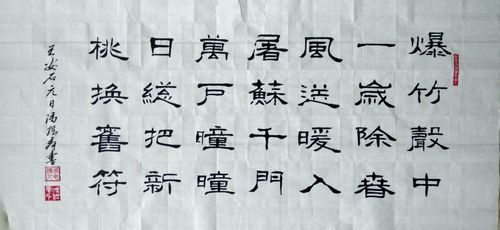 爆竹聲中
一歲除春
風送暖入
屠蘇千門
萬戶曈曈
日總把新
桃換舊符
王安石元日書